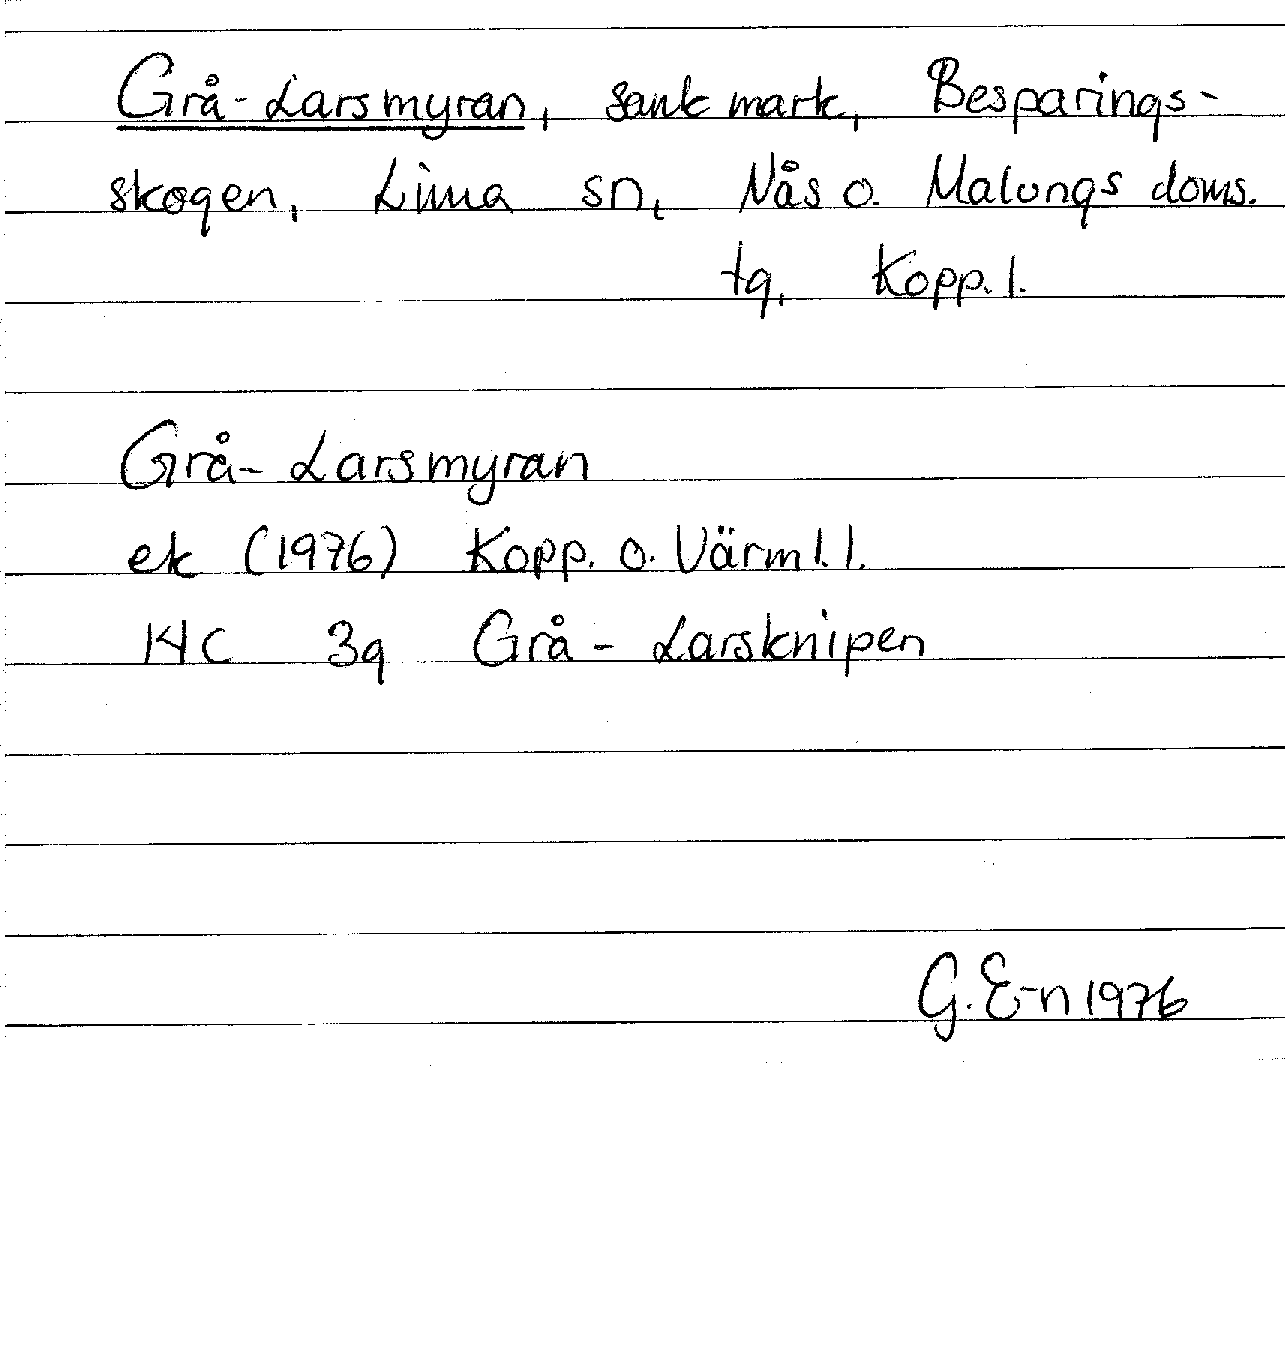 Grå-Larsmyran, sank mark, Besparings-
skogen, Lima sn, Nås o. Malungs doms.
tg, Kopp. l.
Grå-Larsmyran
ek (1976) Kopp. o. Värml. l.
14C 3g Grå-Larsknipen
G. E-n 1976